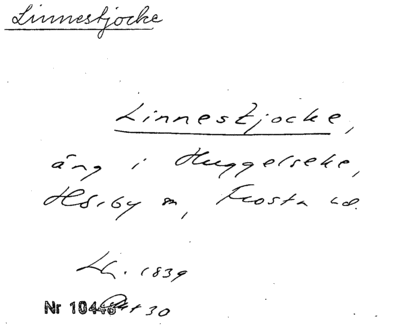 Linnestjocke
Linnestjocke,
äng i Huggelseke,
Hörby sn, Frosta hd.
Lh. 1839
Nr 10